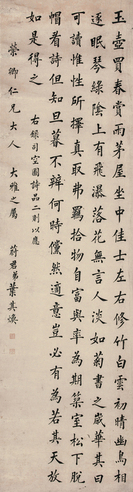 玉壺買春賞雨茅屋坐中佳士左右修竹白雲初晴幽鳥相
逐眠琴綠陰上有飛瀑落花無言人淡如菊書之歲華其曰
可讀惟性所宅真取弗羈拾物自富與率為期築室松下脫
帽看詩但知旦暮不辨何時儻然適意豈必有為若其天放
如是得之
右錄司空圖詩品二則以應
榮卿仁兄大人 大雅之屬
弟葉其